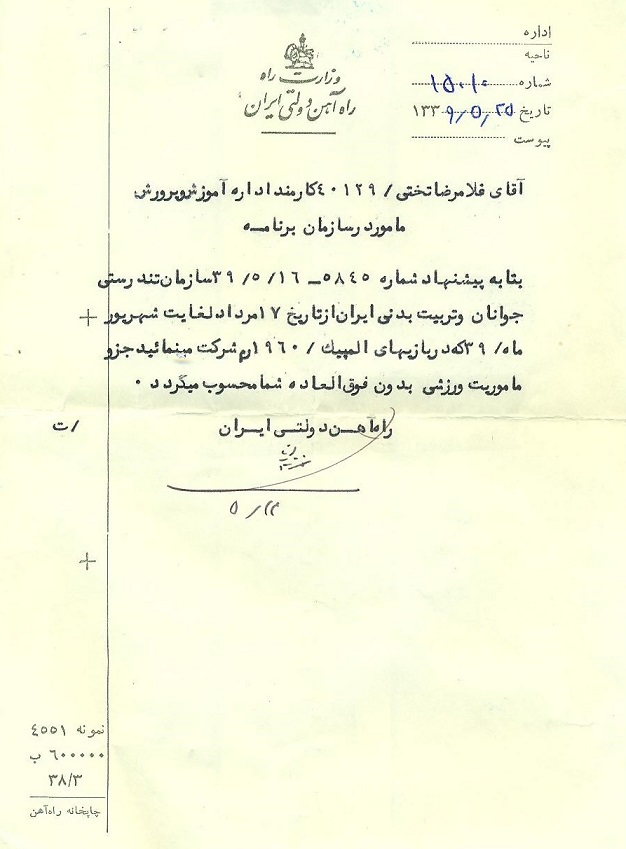 اداره
ناحیه
شماره ۱۵۰۱۰
تاریخ ۱۳۳۹/۵/۲۵
پیوست
وزارت راه
راه آهن دولتی ایران
آقای غلامرضا تختی / ٤۰۱۲۹ کارمند اداره آموزش وپرورش
مامور در سازمان برنامه
بنا به پیشنهاد شماره ۵۸٤۵ – ۳۹/۵/۱۶ سازمان تندرستی
جوانان وتربیت بدنی ایران از تاریخ ۱۷ مرداد لغایت شهریور
ماه/ ۳۹ که در بازیهای المپیک / ۱۹۶۰ رم شرکت مینمائید جزو
ماموریت ورزشی بدون فوق العاده شما محسوب میگردد ۰
راه آهن دولتی ایران
/ت
۵/۲۴
نمونه ٤۵۵۱
۶۰۰۰۰۰ ب
۳۸/۳
چاپخانه راه‌آهن